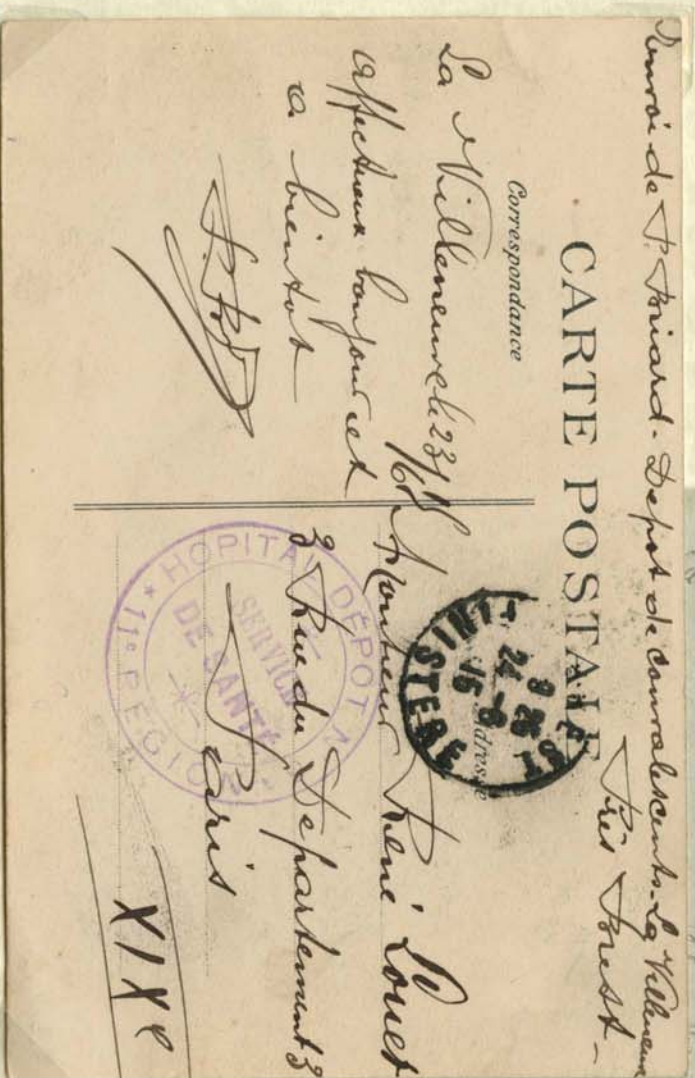 Envoi de P. Briard - Depot de convalescents - La Villeneuve
Près Brest -
CARTE POSTALE
Correspondance
Adresse
La Villeneuve le 23/6/16
affectueux bonjour et
a bientot
Monsieur René Louet
3 Rue du Département 3
Paris
XIXe
HOPITAL DÉPOT
SERVICE
DE SANTÉ
* 11e REGION
24 -6